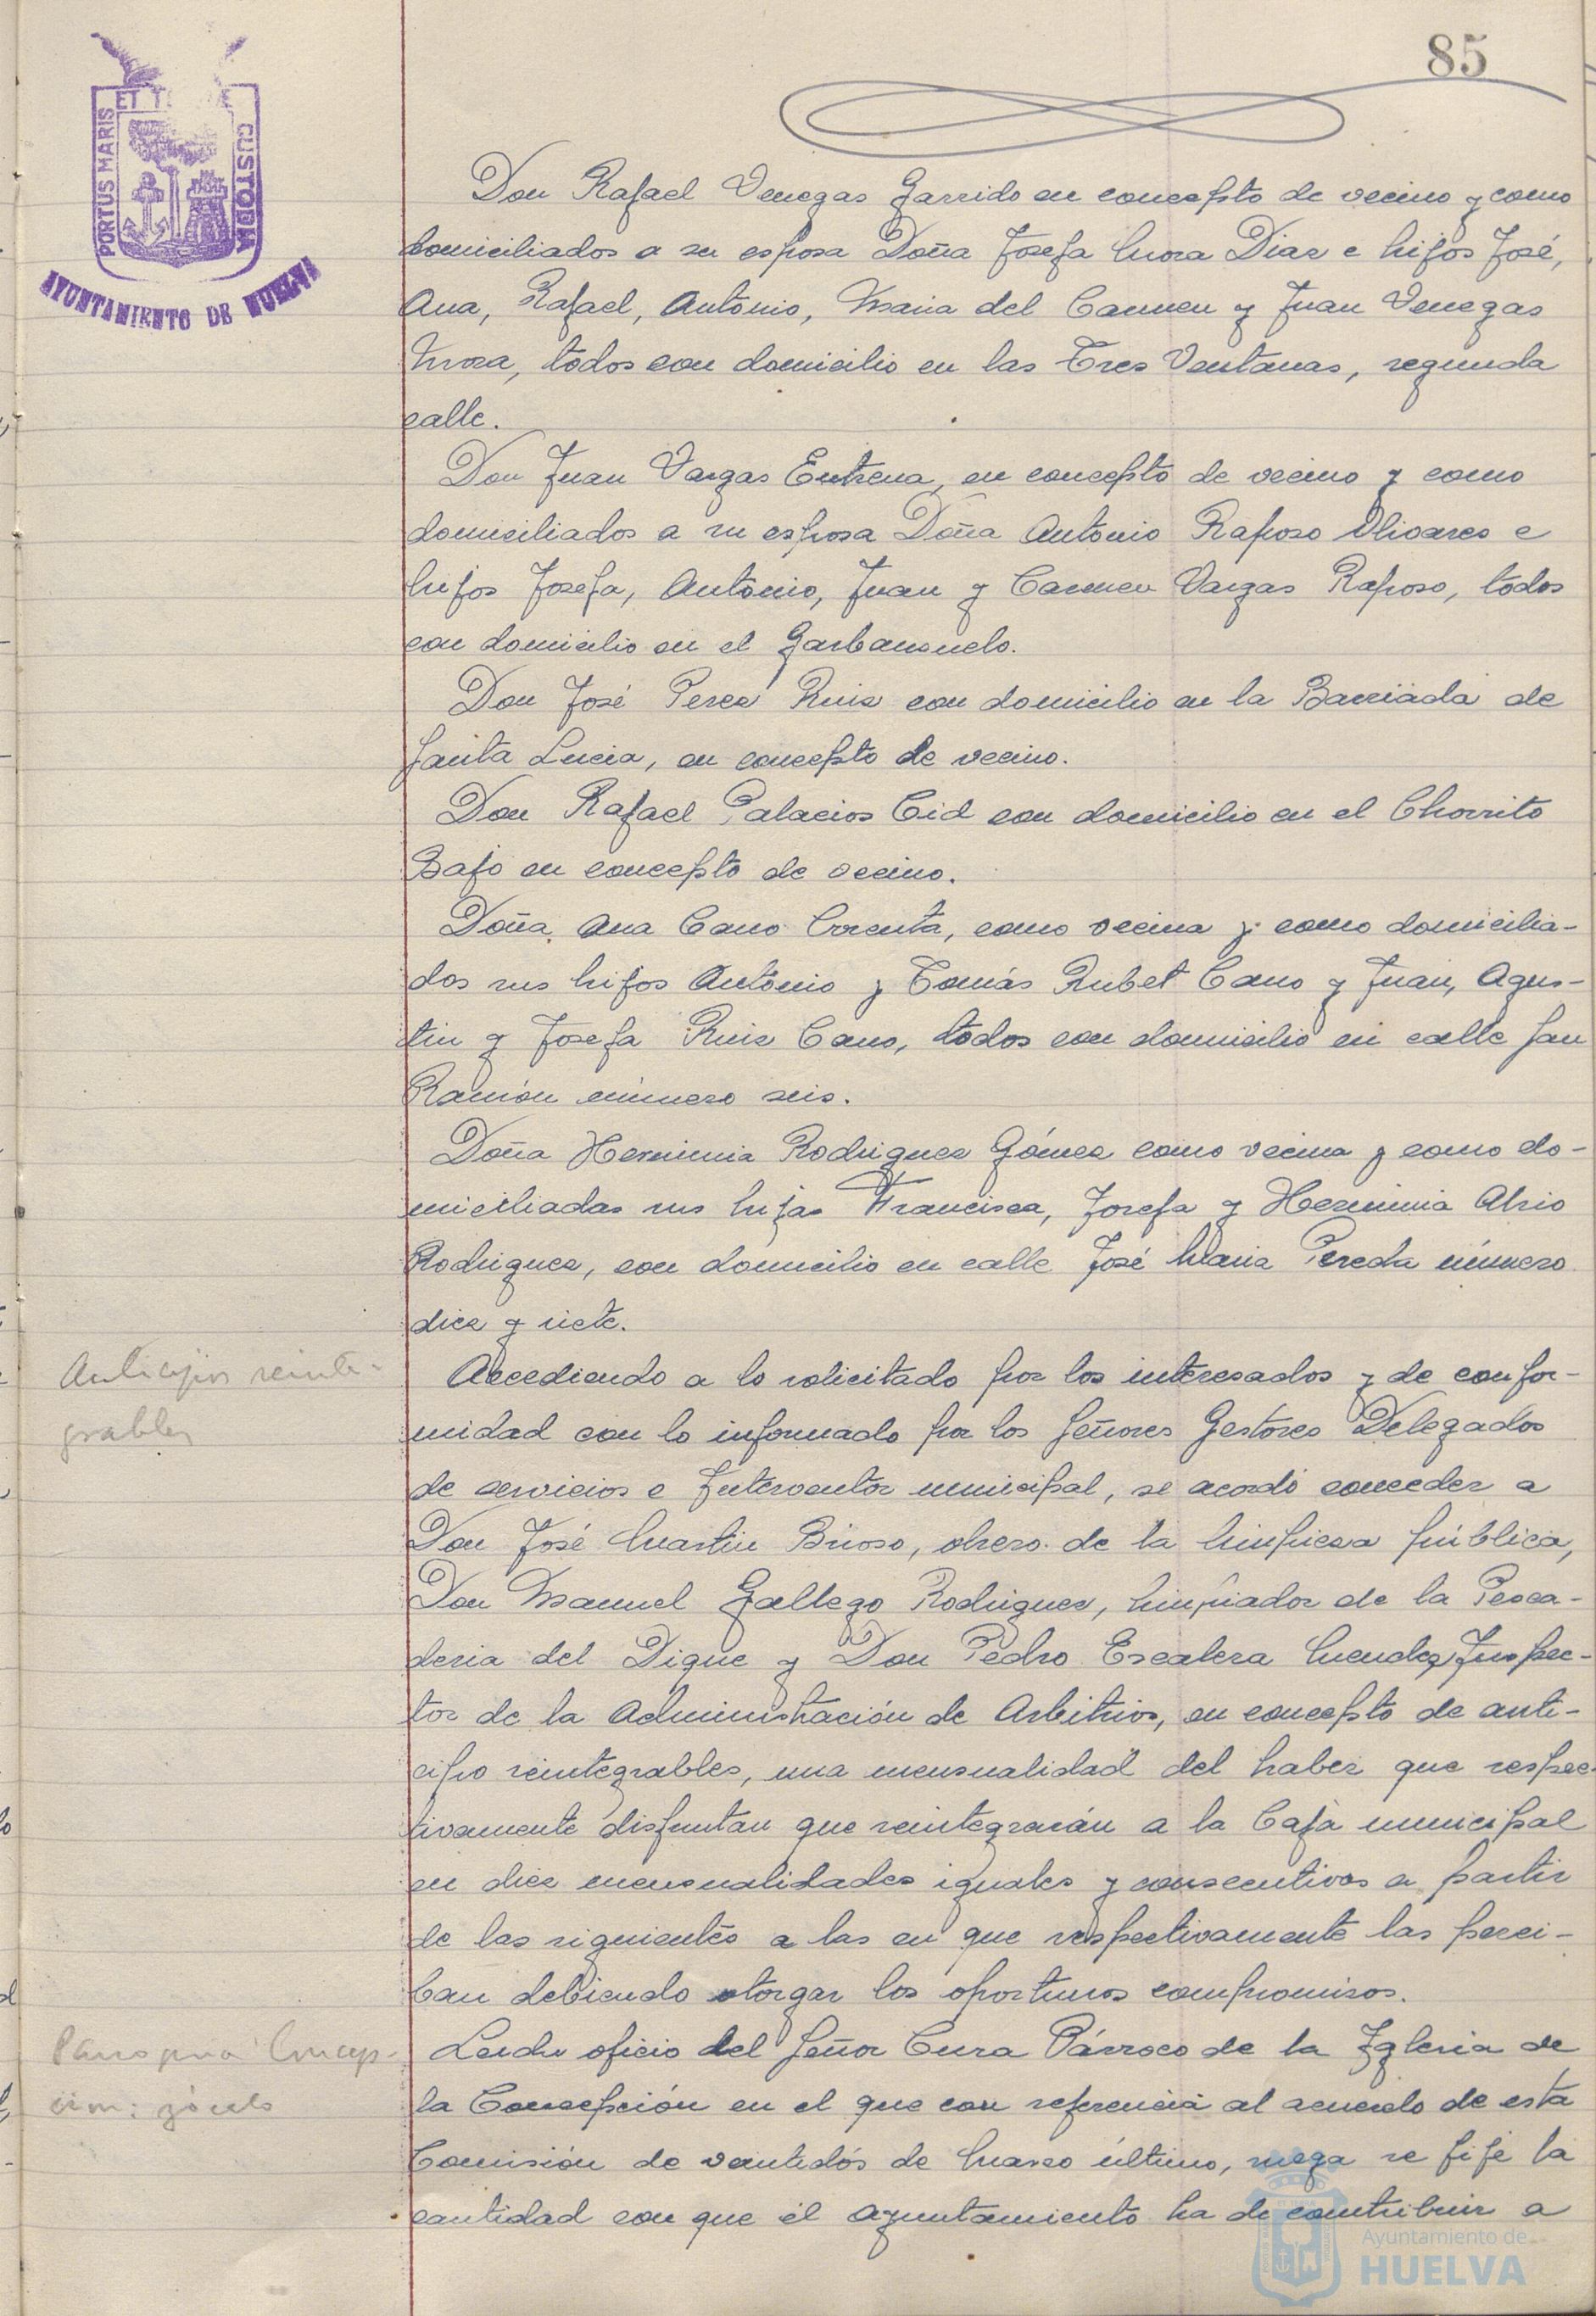 85
PORTUS MARIS
ET T E
CUSTODIA
AYUNTAMIENTO DE HUELVA
Don Rafael Venegas Garrido en concepto de vecino y como
domiciliados a su esposa Doña Josefa Mora Diaz e hijos José,
Ana, Rafael, Antonio, Maria del Carmen y Juan Venegas
Mora, todos con domicilio en las Tres Ventanas, segunda
calle.
Don Juan Vargas Entrena, en concepto de vecino y como
domiciliados a su esposa Doña Antonio Raposo Olivares e
hijos Josefa, Antonio, Juan y Carmen Vargas Raposo, todos
con domicilio en el Garbanzuelo.
Don José Perez Ruiz con domicilio en la Barriada de
Santa Lucia, en concepto de vecino.
Don Rafael Palacios Cid con domicilio en el Chorrito
Bajo en concepto de vecino.
Doña Ana Cano, como vecina y como domicilia-
dos sus hijos Antonio y Tomás Rubet Cano y Juan, Agus-
tin y Josefa Ruiz Cano, todos con domicilio en calle San
Ramón número seis.
Doña Herminia Rodriguez Gómez como vecina y como do-
miciliadas sus hijas Francisca, Josefa y Herminia
Rodriguez, con domicilio en calle José Maria Pereda número
diez y siete.
Anticipos reinte-
grables
Accediendo a lo solicitado por los interesados y de confor-
midad con lo informado por los Señores Gestores Delegados
de servicios e Interventor municipal, se acordó conceder a
Don José Martin Brioso, obrero de la limpieza pública,
Don Manuel Gallego Rodriguez, limpiador de la Pesca-
deria del Dique y Don Pedro Escalera Mendez, Inspec-
tor de la Administración de Arbitrios, en concepto de anti-
cipo reintegrables, una mensualidad del haber que respec-
tivamente disfrutan que reintegrarán a la Caja municipal
en diez mensualidades iguales y consecutivas a partir
de las siguientes a las en que respectivamente las perci-
ban debiendo otorgar los oportunos compromisos.
Parroquia Concep-
cion: zócalo
Leido oficio del Señor Cura Párroco de la Iglesia de
la Concepción en el que con referencia al acuerdo de esta
Comisión de veintidós de Marzo último, ruega se fije la
cantidad con que el Ayuntamiento ha de contribuir a
Ayuntamiento de
HUELVA